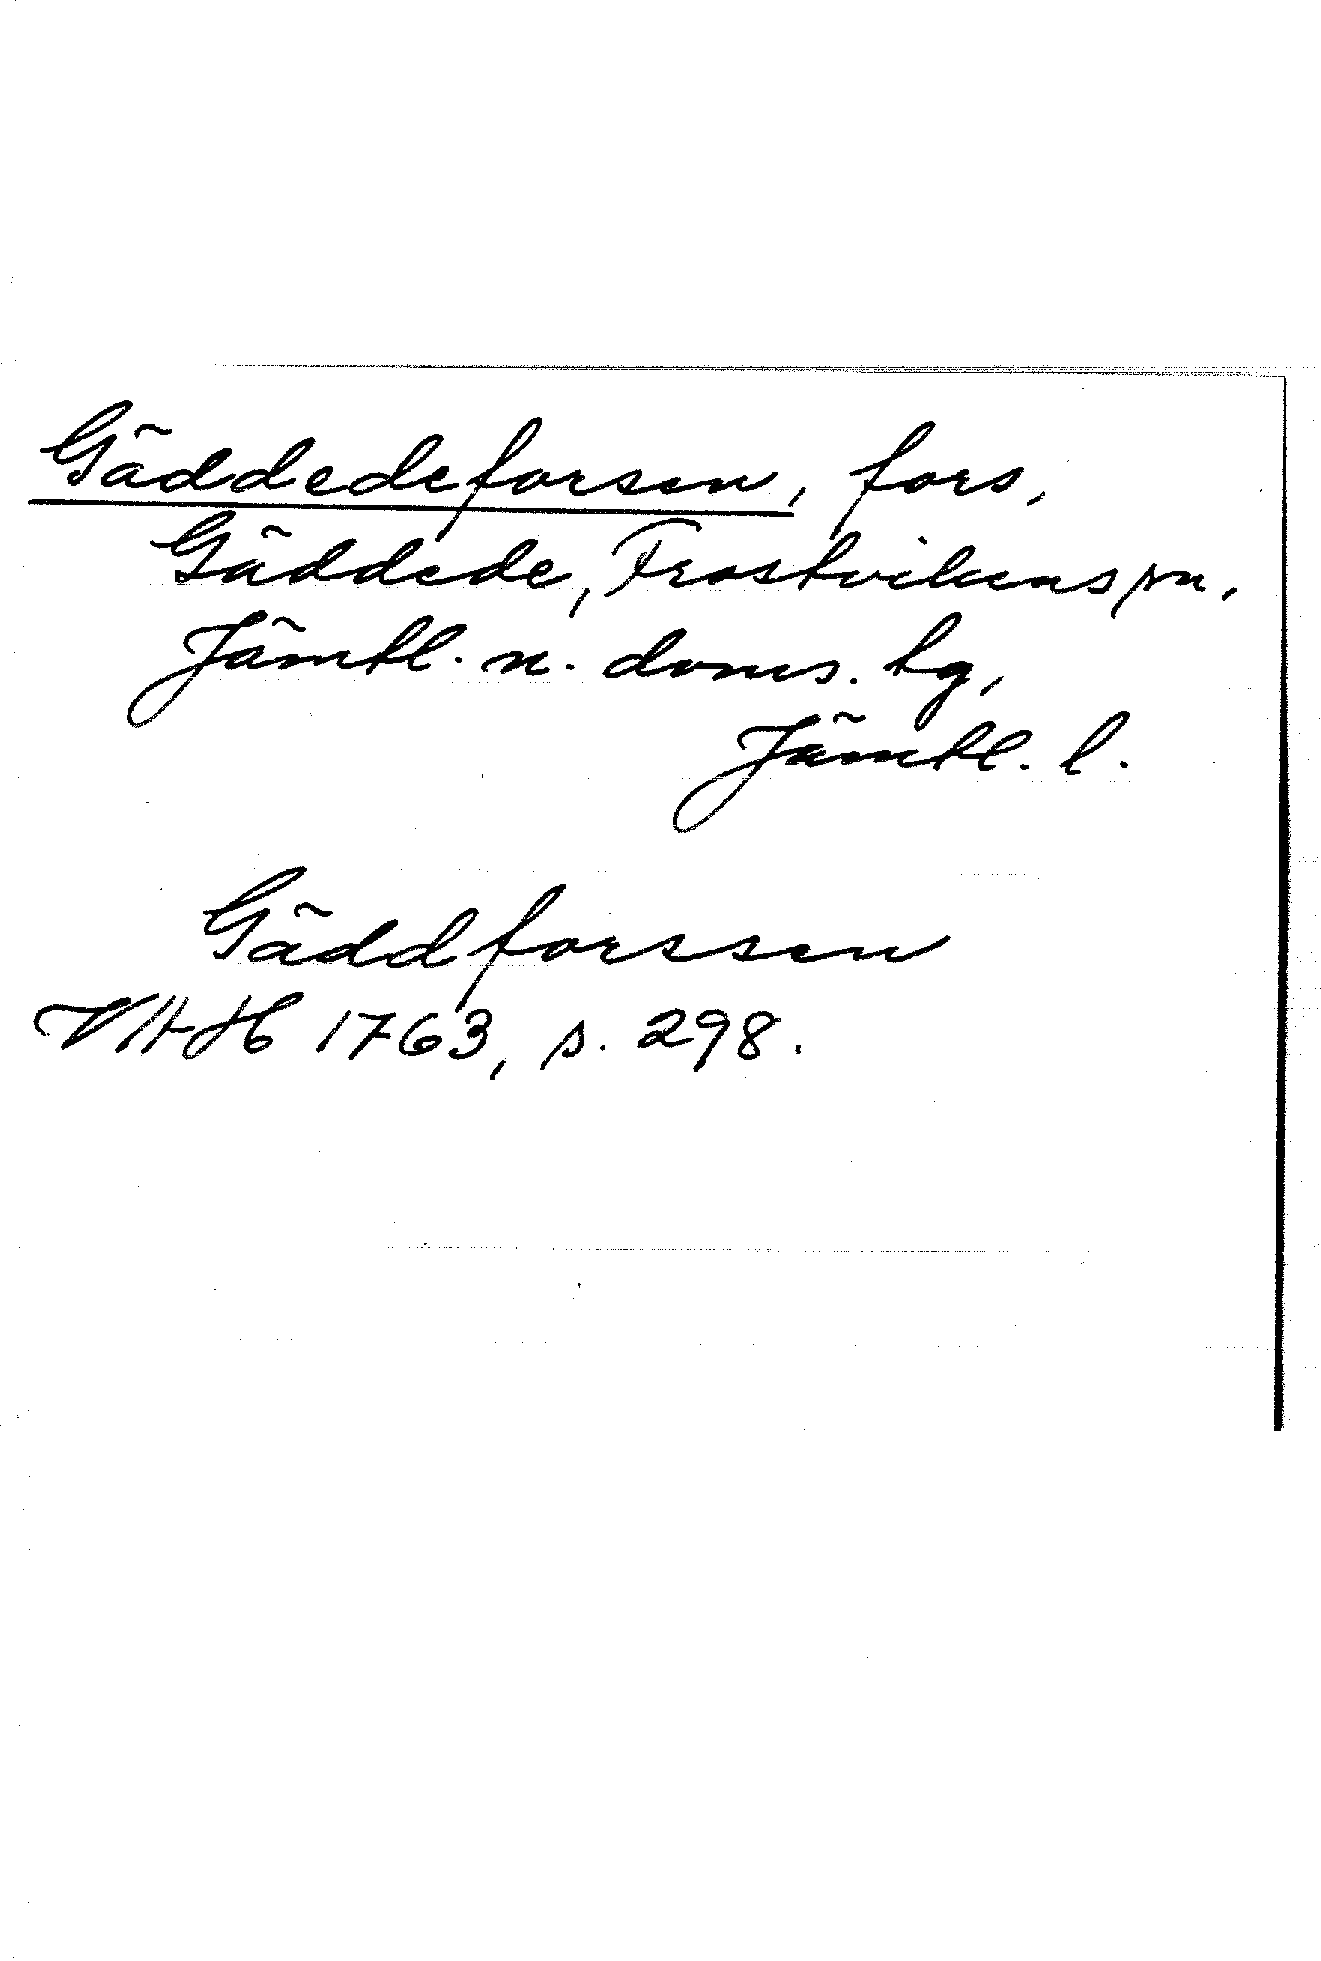 Gäddedeforsen, fors,
Gäddede, Frostvikens sn,
Jämtl. n. doms. tg,
Jämtl. l.
Gäddforssen
VHAH 1763, s. 298.